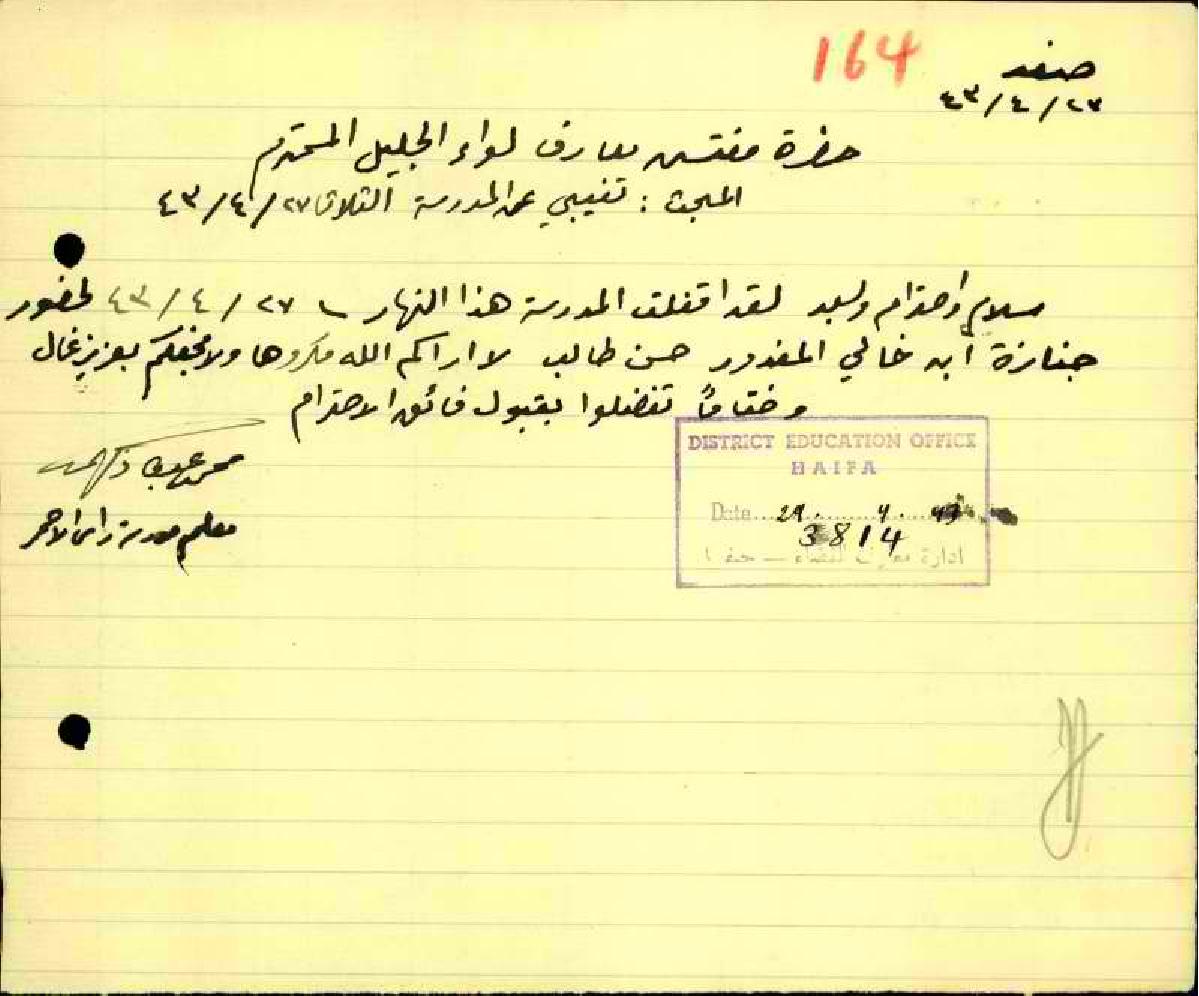 164
صفد
٢٣/٤/٤٣
حضرة مفتش معارف لواء الجليل المحترم
المبحث : تغيبي عن المدرسة الثلاثا ٢٧/٤/٤٣
سلام واحترام وبعد لقد اقفلت المدرسة هذا النهار ٢٧/٤/٤٣ لحضور
جنازة ابن خالي المغدور حسن طالب لا اراكم الله مكروها ولا فجعكم بعزيز غال
وختاماً تفضلوا بقبول فائق الاحترام
محمد
معلم مدرسة راس الاحمر
DISTRICT EDUCATION OFFICE
HAIFA
Date 29. 4. 43
3814
ادارة معارف القضاء — حيفا